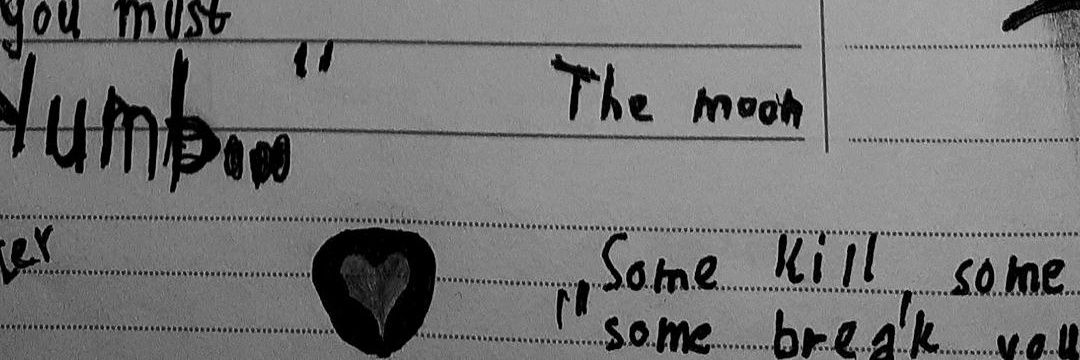 you must
Numb..."
The moon
ter
Some Kill, some
"some break you